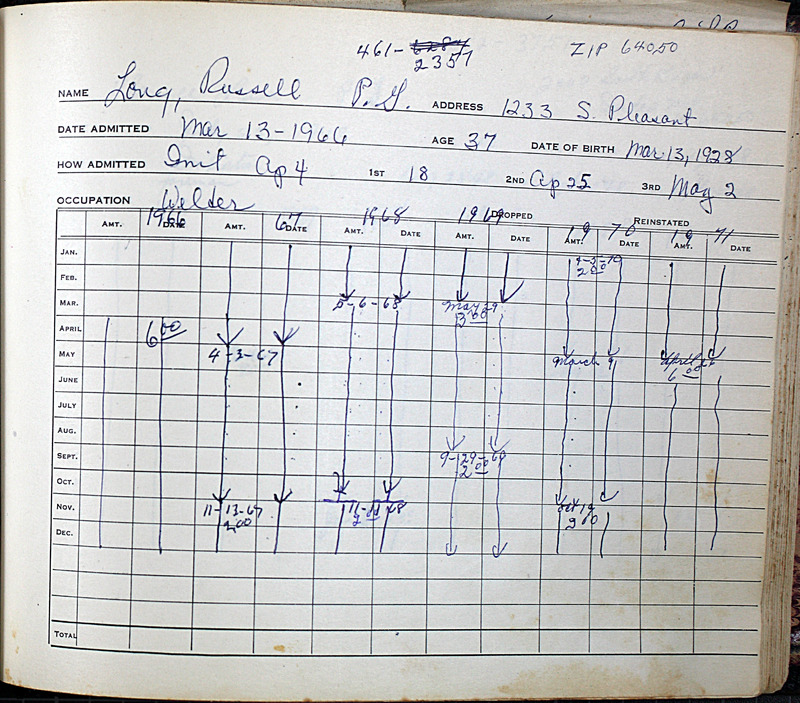 461-6284 ZIP 64050
2357
NAME Long, Russell P.G. ADDRESS 1233 S. Pleasant
DATE ADMITTED Mar 13-1966 AGE 37 DATE OF BIRTH Mar. 13, 1928
HOW ADMITTED Init Ap 4 1ST 18 2ND Ap 25 3RD May 2
OCCUPATION Welder DROPPED REINSTATED
1966 67 1968 1969 19 70 19 71
AMT. DATE AMT. DATE AMT. DATE AMT. DATE AMT. DATE AMT. DATE
JAN. 4-3-70
FEB. 2 00
MAR. 5-6-68 May 29
3 00
APRIL 6 00
MAY 4-3-67 March 9 April
JUNE 6 00
JULY
AUG.
SEPT. 9-29-69
2 00
OCT.
NOV. 11-13-67 11-11-68 Oct 19
2 00 2 00 2 00
DEC.
TOTAL